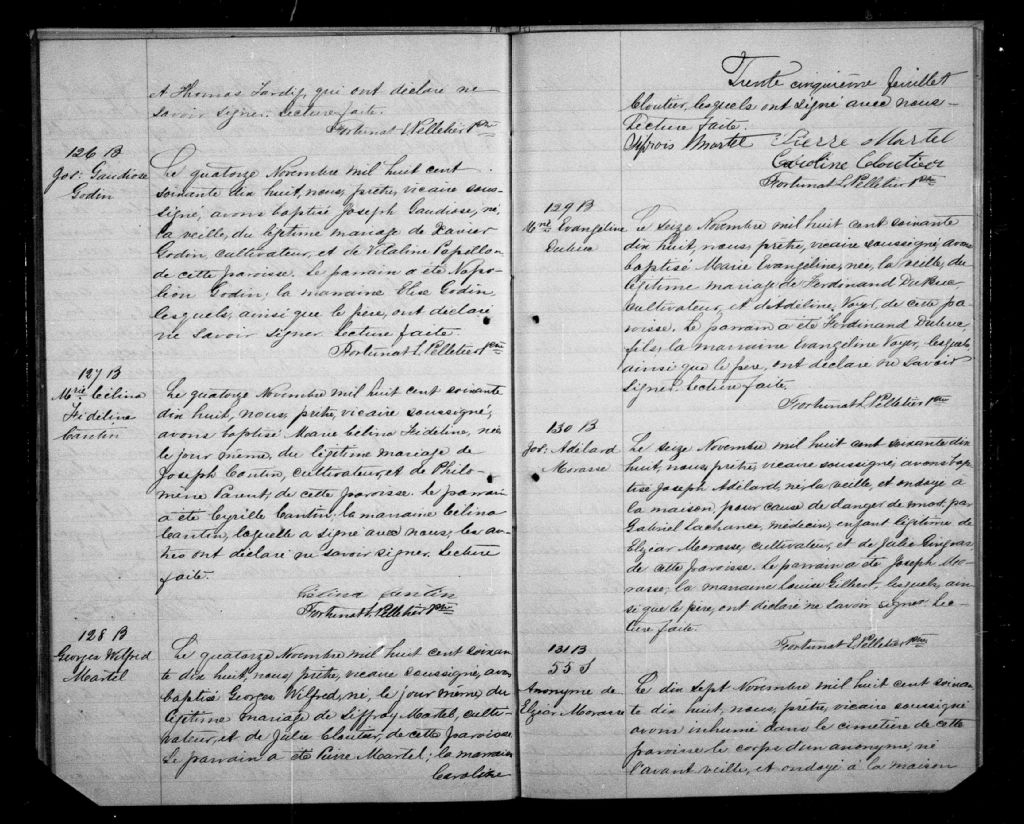 A Thomas Tardif, qui ont déclaré ne
savoir signer. Lecture faite.
Fortunat L. Pelletier Ptre
126 B
Jos: Gaudiose
Godin
Le quatorze Novembre mil huit cent
soixante dix huit, nous, prêtre, vicaire sous-
signé, avons baptisé Joseph Gaudiose, né,
la veille, du légitime mariage de Xavier
Godin, cultivateur, et de Vitaline Papillon
de cette paroisse. Le parrain a été Napo-
léon Godin; la marraine Elise Godin,
lesquels, ainsi que le père, ont déclaré
ne savoir signer. Lecture faite.
Fortunat L. Pelletier Ptre
127 B
Mrie Célina
Fideline
Cantin
Le quatorze Novembre mil huit cent soixante
dix huit, nous, prêtre, vicaire soussigné,
avons baptisé Marie Célina Fideline, née
le jour même, du légitime mariage de
Joseph Cantin, cultivateur, et de Philo-
mène Parent, de cette paroisse. Le parrain
a été Cyrille Cantin; la marraine Célina
Cantin, laquelle a signé avec nous; les au-
tres ont déclaré ne savoir signer. Lecture
faite.
Célina Cantin
Fortunat L. Pelletier Ptre
128 B
Georges Wilfred
Martel
Le quatorze Novembre mil huit cent soixan-
te dix huit, nous, prêtre, vicaire soussigné, avons
baptisé Georges Wilfred, né, le jour même du
légitime mariage de Siffroy Martel, culti-
vateur, et de Julie Cloutier, de cette paroisse.
Le parrain a été Pierre Martel; la marraine
Caroline
Trente cinquième feuillet
Cloutier, lesquels ont signé avec nous-
Lecture faite.
Martel Pierre Martel
Caroline Cloutier
Fortunat L. Pelletier Ptre
129 B
Mrie Evangeline
Dubuc
Le seize Novembre mil huit cent soixante
dix huit, nous, prêtre, vicaire soussigné, avons
baptisé Marie Evangeline, née, la veille, du
légitime mariage de Ferdinand Dubuc
cultivateur, et d'Adéline Voyer, de cette pa-
roisse. Le parrain a été Ferdinand Dubuc
fils; la marraine Evangeline Voyer, lesquels
ainsi que le père, ont déclaré ne savoir
signer. Lecture faite.
Fortunat L. Pelletier Ptre
130 B
Jos: Adélard
Morasse
Le seize Novembre mil huit cent soixante dix
huit, nous, prêtre, vicaire soussigné, avons bap-
tisé Joseph Adélard, né, la veille, et ondoyé à
la maison, pour cause de danger de mort, par
Gabriel Lachance, médecin, enfant légitime de
Elzéar Morasse, cultivateur, et de Julie Gingras
de cette paroisse. Le parrain a été Joseph Mo-
rasse; la marraine Louise Gilbert, lesquels, ain-
si que le père, ont déclaré ne savoir signer. Lec-
ture faite.
Fortunat L. Pelletier Ptre
131 B
55 S
Anonyme de
Elzéar Morasse
Le dix sept Novembre mil huit cent soixan-
te dix huit, nous, prêtre, vicaire soussigné
avons inhumé dans le cimetière de cette
paroisse le corps d'un anonyme, né
l'avant veille, et ondoyé à la maison